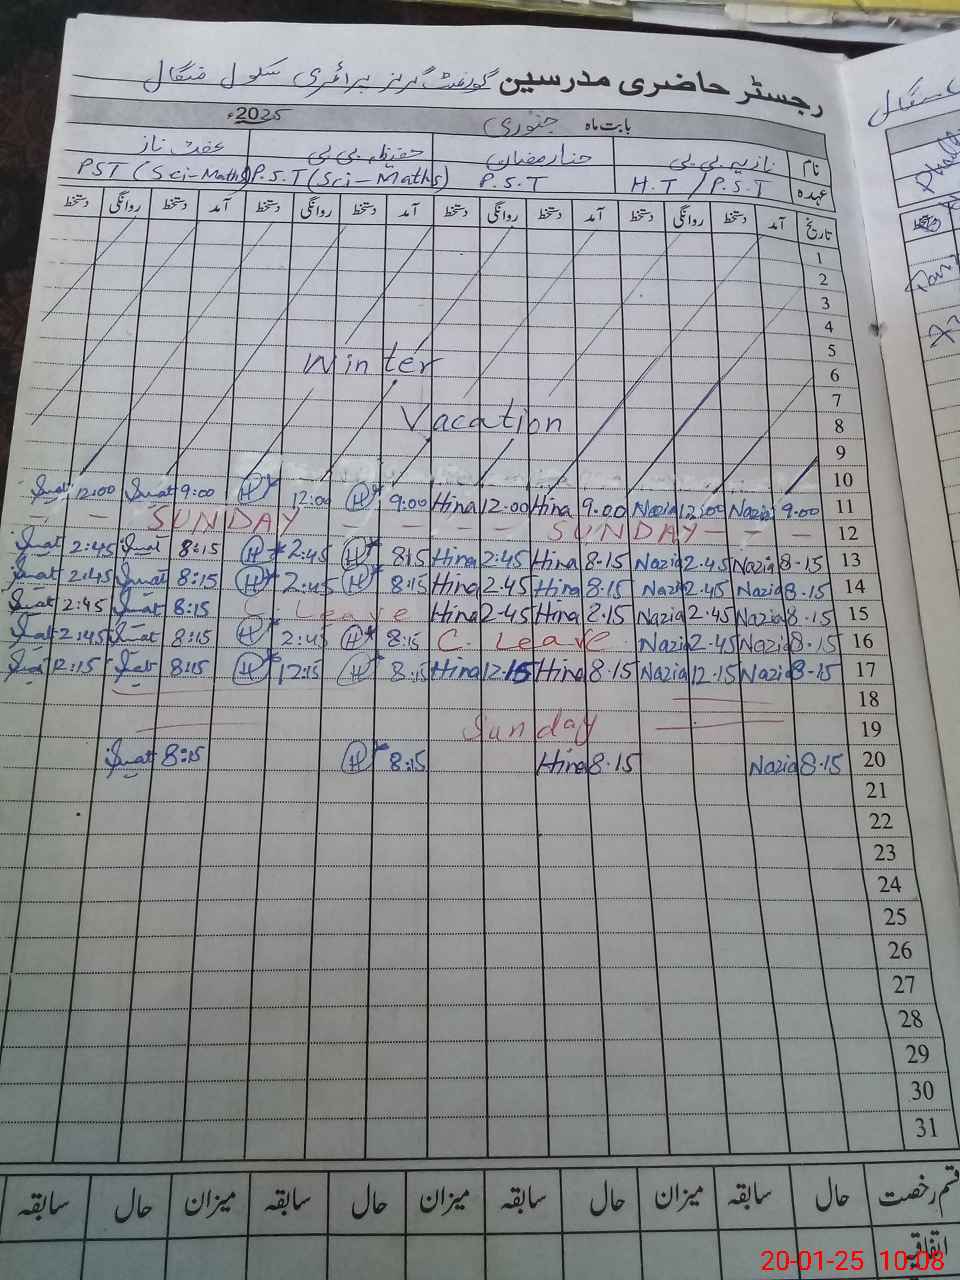 رجسٹر حاضری مدرسین گورنمنٹ گرلز پرائمری سکول منگال
بابت ماہ جنوری 2025ء
نام نازیہ بی بی حنا رمضان حفیظہ بی بی عفت ناز
عہدہ H.T / P.S.T P.S.T P.S.T (Sci-Maths) PST (Sci-Maths)
تاریخ آمد دستخط روانگی دستخط آمد دستخط روانگی دستخط آمد دستخط روانگی دستخط آمد دستخط روانگی دستخط
1
2
3
4
5
Winter
6
7
Vacation
8
9
10
12:00 9:00 H 12:00 H 9:00 Hina 12.00 Hina 9.00 Nazia 12:00 Nazia 9.00 11
- - SUNDAY - - - SUNDAY - - - 12
2:45 8:15 H 2:45 H 8:15 Hina 2:45 Hina 8.15 Nazia 2.45 Nazia 8.15 13
2:45 8:15 H 2:45 H 8:15 Hina 2.45 Hina 8.15 Nazia 2.45 Nazia 8.15 14
2:45 8:15 C. Leave Hina 2.45 Hina 8.15 Nazia 2.45 Nazia 8.15 15
2:45 8:15 H 2:45 H 8:15 C. Leave Nazia 2.45 Nazia 8.15 16
12:15 8:15 H 12:15 H 8:15 Hina 12.15 Hina 8.15 Nazia 12.15 Nazia 8.15 17
18
Sunday 19
8:15 H 8:15 Hina 8.15 Nazia 8.15 20
21
22
23
24
25
26
27
28
29
30
31
قسم رخصت حال سابقہ میزان حال سابقہ میزان حال سابقہ میزان حال سابقہ
اتفاقیہ
20-01-25 10:08